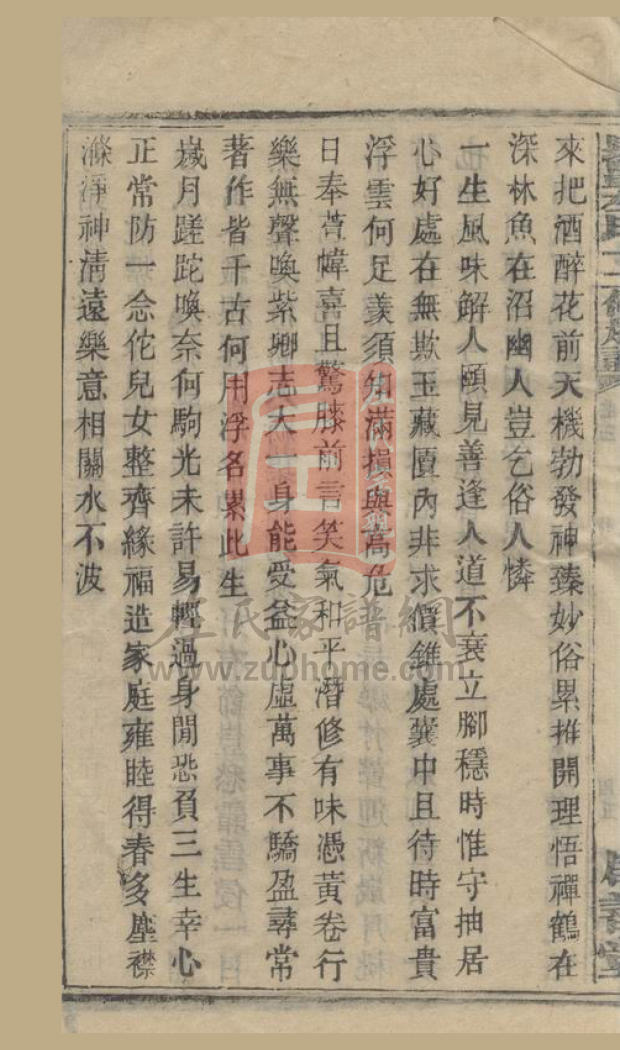 來把酒醉花前天機勃發神臻妙俗累推開理悟禪鶴在
深林魚在沼幽人豈乞俗人憐
一生風味解人頤見善逢人道不衰立腳穩時惟守抽居
心好處在無欺玉藏匵內非求價錐處囊中且待時富貴
浮雲何足羨須知滿損與高危
日奉萱幃喜且驚膝前言笑氣和平潛修有味憑黃卷行
樂無聲喚紫卿志大一身能受益心虛萬事不驕盈尋常
著作皆千古何用浮名累此生
歲月蹉跎喚奈何駒光未許易輕過身閒恐負三生幸心
正常防一念佗兒女整齊緣福造家庭雍睦得春多塵襟
滌淨神淸遠樂意相關水不波
左氏家譜網
www.zuohome.com